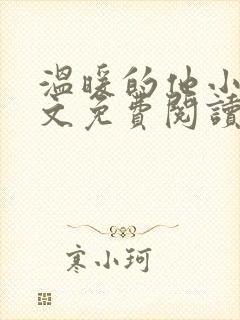 溫暖的他小
文免費閱讀
寒小珂